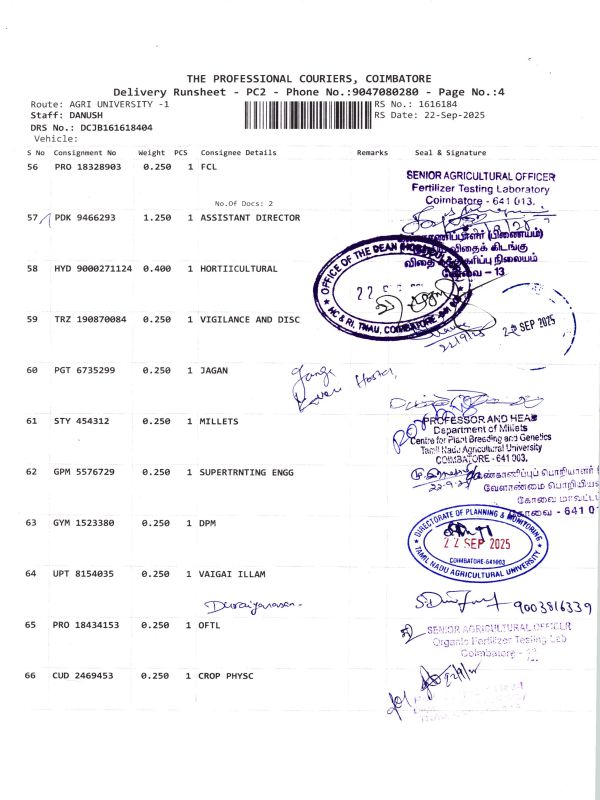 THE PROFESSIONAL COURIERS, COIMBATORE
Delivery Runsheet - PC2 - Phone No.:9047080280 - Page No.:4
Route: AGRI UNIVERSITY -1
RS No.: 1616184
Staff: DANUSH
RS Date: 22-Sep-2025
DRS No.: DCJB161618404
Vehicle:
S No Consignment No Weight PCS Consignee Details Remarks Seal & Signature
56 PRO 18328903 0.250 1 FCL
SENIOR AGRICULTURAL OFFICER
Fertilizer Testing Laboratory
Coimbatore - 641 013.
No.Of Docs: 2
57 PDK 9466293 1.250 1 ASSISTANT DIRECTOR
விதைக் கிடங்கு
விதை நிலையம்
கோவை - 13
58 HYD 9000271124 0.400 1 HORTIICULTURAL
OFFICE OF THE DEAN
22 SEP
HC & RI, TNAU, COIMBATORE
59 TRZ 190870084 0.250 1 VIGILANCE AND DISC
22/9/25
22 SEP 2025
60 PGT 6735299 0.250 1 JAGAN
Hostel
61 STY 454312 0.250 1 MILLETS
PROFESSOR AND HEAD
Department of Millets
Centre for Plant Breeding and Genetics
Tamil Nadu Agricultural University
COIMBATORE - 641 003.
62 GPM 5576729 0.250 1 SUPERTRNTING ENGG
கண்காணிப்புப் பொறியாளர்
வேளாண்மை பொறியியல்
கோவை மாவட்ட
கோவை - 641 0
22-9-25
63 GYM 1523380 0.250 1 DPM
DIRECTORATE OF PLANNING & MONITORING
22 SEP 2025
COIMBATORE-641003
TAMIL NADU AGRICULTURAL UNIVERSITY
64 UPT 8154035 0.250 1 VAIGAI ILLAM
9003816339
65 PRO 18434153 0.250 1 OFTL
SENIOR AGRICULTURAL OFFICER
Organic Fertilizer Testing Lab
Coimbatore -
66 CUD 2469453 0.250 1 CROP PHYSC